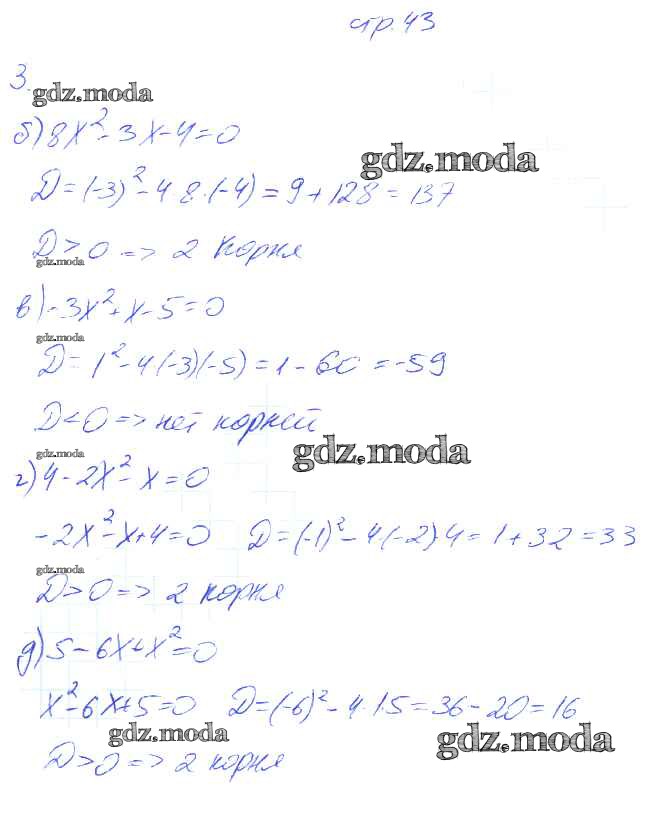 стр. 43
3.
gdz.moda
б) 8x² - 3x - 4 = 0
gdz.moda
D = (-3)² - 4·8·(-4) = 9 + 128 = 137
D > 0 => 2 корня
gdz.moda
в) -3x² + x - 5 = 0
gdz.moda
D = 1² - 4·(-3)(-5) = 1 - 60 = -59
D < 0 => нет корней
gdz.moda
gdz.moda
г) 4 - 2x² - x = 0
-2x² - x + 4 = 0 D = (-1)² - 4·(-2)·4 = 1 + 32 = 33
gdz.moda
D > 0 => 2 корня
д) 5 - 6x + x² = 0
x² - 6x + 5 = 0 D = (-6)² - 4·1·5 = 36 - 20 = 16
gdz.moda
gdz.moda
D > 0 => 2 корня